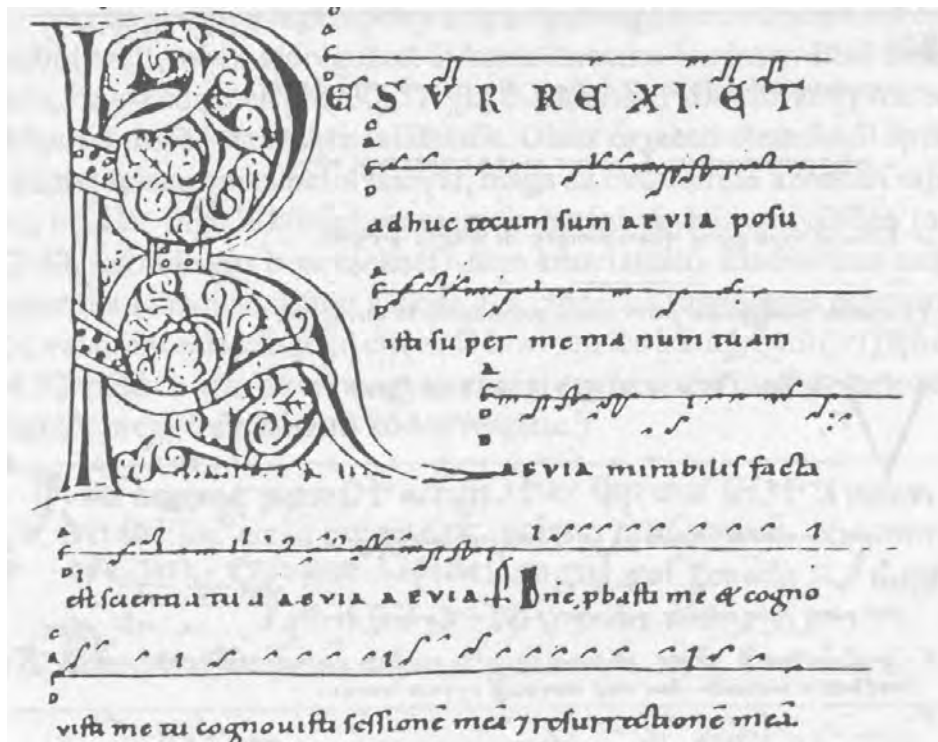 RESVRREXI E
adhuc tecum sum AEVIA posu
isti super me manum tuam
AEVIA mirabilis facta
est scientia tua AEVIA AEVIA Dne, pbasti me & cogno
visti me tu cognovisti sessionē meā 7 resurrectionē meā